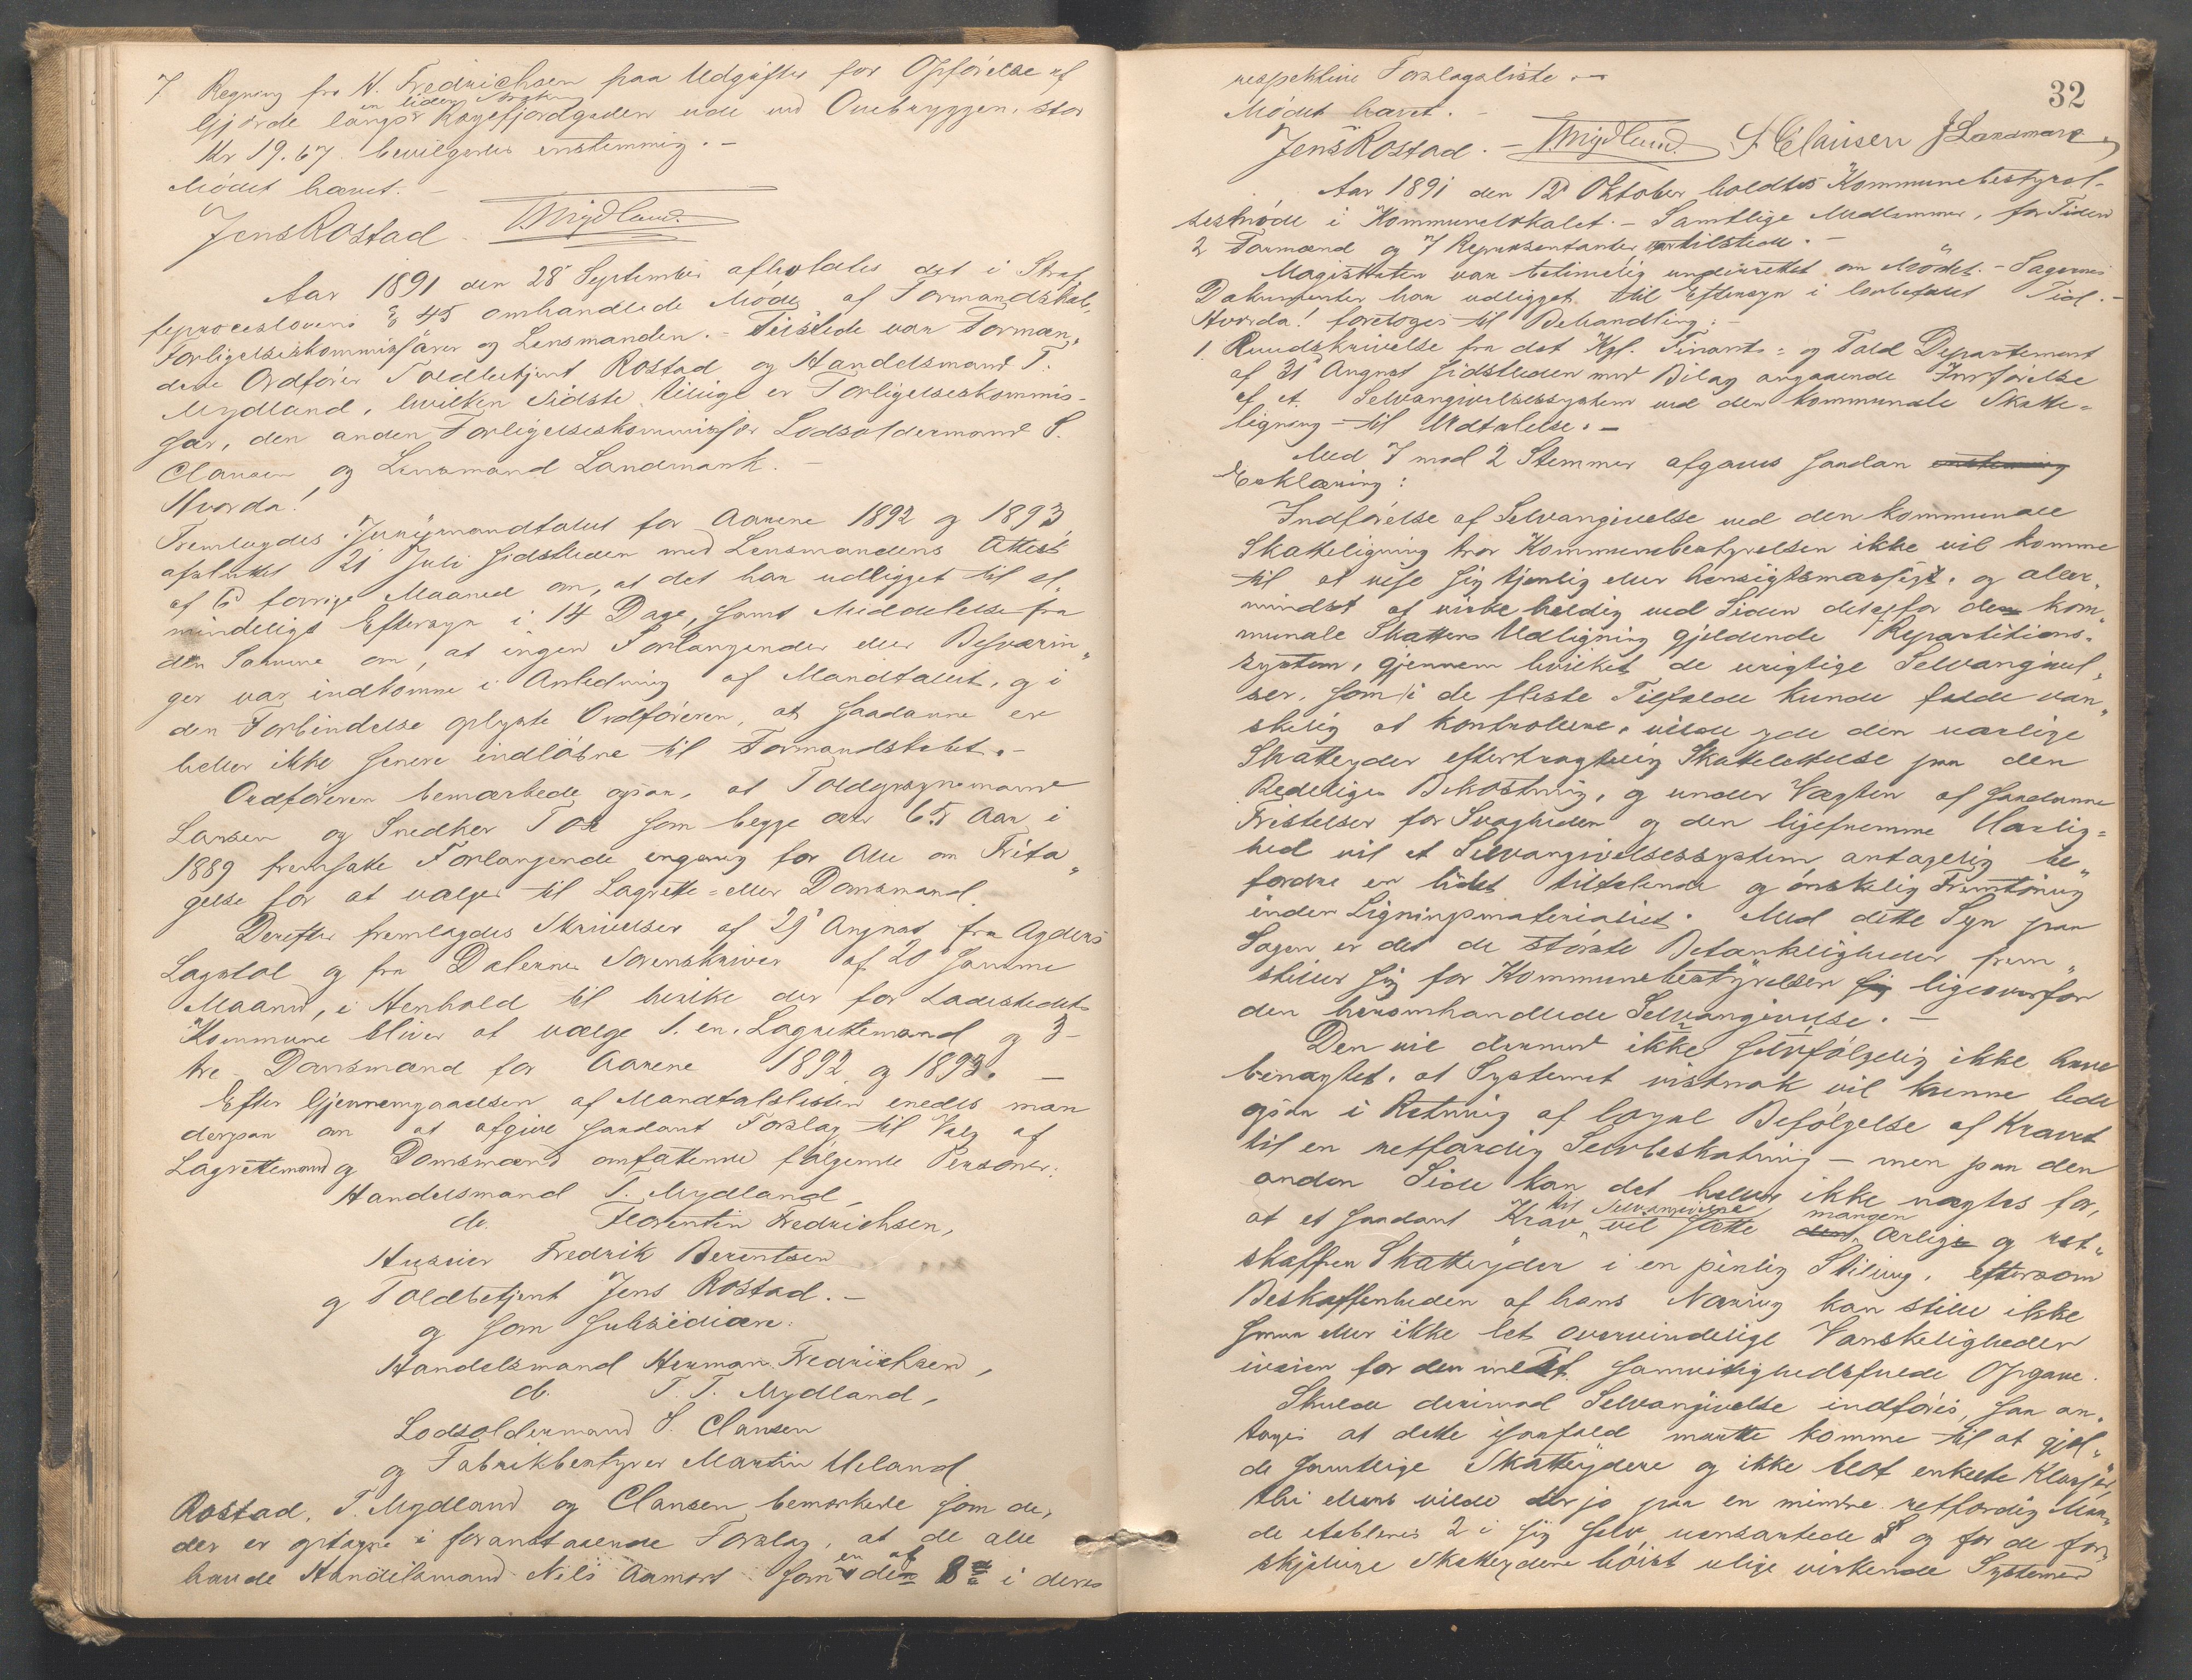 7 Regning fra H. Fredrichsen paa Udgifter for Opførelse af
en liden Strøkn
Gjærde langs Rægefjordgaden ude ved Ouebryggen, stor
Kr 19.67. bevilgedes enstemmig. –
Mødet hævet. –
Jens Rostad – T. Mydland.
Aar 1891 den 28' September afholdtes det i Straf„
feproceslovens § 45 omhandlede Møde af Formandskab,
Forligelseskommissærer og Lensmanden. – Tilstede var Formæn„
dene Ordfører Toldbetjent Rostad og Handelsmand T.
Mydland, hvilken Sidste tillige er Forligelseskommis-
sær, den anden Forligelseskommissær Lodsoldermand S.
Clausen og Lensmand Landmark. –
Hvorda!
Fremlagdes Jurymandtallet for Aarene 1892 og 1893,
afsluttet 21 Juli sidstleden med Lensmandens Attest
af 6' forrige Maaned om, at det har udligget til al„
mindeligt Eftersyn i 14 Dage, samt Meddelelse fra
den Samme om, at ingen Forlangender eller Besværin„
ger var indkomne i Anledning af Mandtallet, og i
den Forbindelse oplyste Ordføreren, at saadanne er
heller ikke senere indløbne til Formandskabet. –
Ordføreren bemærkede ogsaa, at Toldopsynsmand
Larsen og Snedker Tox som begge over 65 Aar i
1889 fremsatte Forlangende engang for Alle om Frita„
gelse for at vælges til Lagrette- eller Domsmand.
Derefter fremlagdes Skrivelser af 29' August fra Agders
Lagstol og fra Dalernes Sorenskriver af 20' samme
Maaned, i Henhold til hvilke der for Ladestedets
Kommune bliver at vælge 1. en. Lagrettemand og 3 –
tre – Domsmænd for Aarene 1892 og 1893. –
Efter Gjennemgaaelsen af Mandtalslisten enedes man
derpaa om at afgive saadant Forslag til Valg af
Lagrettemand og Domsmænd omfattende følgende Personer:
Handelsmand T. Mydland,
do. Florentin Fredrichsen,
Huseier Fredrik Berentsen
og Toldbetjent Jens Rostad. –
og som Subsidiære:
Handelsmand Herman Fredrichsen,
do. T. T. Mydland,
Lodsoldermand S. Clausen
og Fabrikbestyrer Martin Ueland
Rostad, T. Mydland og Clausen bemærkede som de,
der er optagne i foranstaaende Forslag, at de alle
en af
havde Handelsmand Nils Aamodt som den 8de i deres
32
respektive Forslagsliste. –
Mødet hævet. –
Jens Rostad. – T. Mydland. S. Clausen J Landmark
Aar 1891 den 12' Oktober holdtes Kommunebestyrel-
sesmøde i Kommunelokalet. – Samtlige Medlemmer, for Tiden
2 Formænd og 7 Repræsentanter var tilstede. –
Magistraten var betimelig underrettet om Mødet. – Sagernes
Dokumenter har udligget til Eftersyn i lovbefalet Tid. –
Hvorda! foretoges til Behandling: –
1. Rundskrivelse fra det Kgl. Finants- og Told Departement
af 31' August sidstleden med Bilag angaaende Indførelse
af et Selvangivelsessystem ved den kommunale Skatte-
ligning – til Udtalelse. –
Med 7 mod 2 Stemmer afgaves saadan enstemmig
Erklæring:
Indførelse af Selvangivelse ved den kommunale
Skatteligning tror Kommunebestyrelsen ikke vil komme
til at vise sig tjenlig eller hensigtsmæssigt, og aller„
mindst at virke heldig ved Siden det for den kom„
munale Skattens Udligning gjeldende Repartitions-
system, gjennem hvilket de urigtige Selvangivel„
ser, som i de fleste Tilfælde kunde falde van„
skelig at kontrollere, vilde yde den uærlige
Skatteyder eftertragtelig Skattelettelse paa den
Redeliges Bekostning, og under Vægten af saadanne
Fristelser for Svagheden og den ligefremme Uærlig-
hed vil et Selvangivelsessystem antagelig be„
fordre en lidet tiltalende og ønskelig Fremtoning
inden Ligningsmaterialiet. Med dette Syn paa
Sagen er det de største Betænkeligheder frem„
stiller sig for Kommunebestyrelsen sig ligeoverfor
den heromhandlede Selvangivelse. –
Den vil dermed ikke selvfølgelig ikke have
benægtet, at Systemet vistnok vil kunne lede
ogsaa i Retning af loyal Befølgelse af Kravet
til en retfærdig Selvbeskatning – men paa den
anden Side kan det heller ikke nægtes for,
til Selvangivelse mangen
at et saadant Krav vil sætte den ærlige og ret„
skaffen Skatteyder i en pinlig Stilling, eftersom
Beskaffenheden af hans Næring kan stille ikke
smaa eller ikke let overvindelige Vanskeligheder
iveien for den mest samvittighedsfulde Opgave.
Skulde derimod Selvangivelse indføres, saa an„
tages at dette isaafald maatte komme til at gjæl„
de samtlige Skatteydere og ikke blot enkelte Klasser,
thi ellers vilde der jo paa en mindre retfærdig Maa„
de etableres 2 i sig selv uensartede og for de for„
skjellige Skatteydere høist ulige virkende Systemer